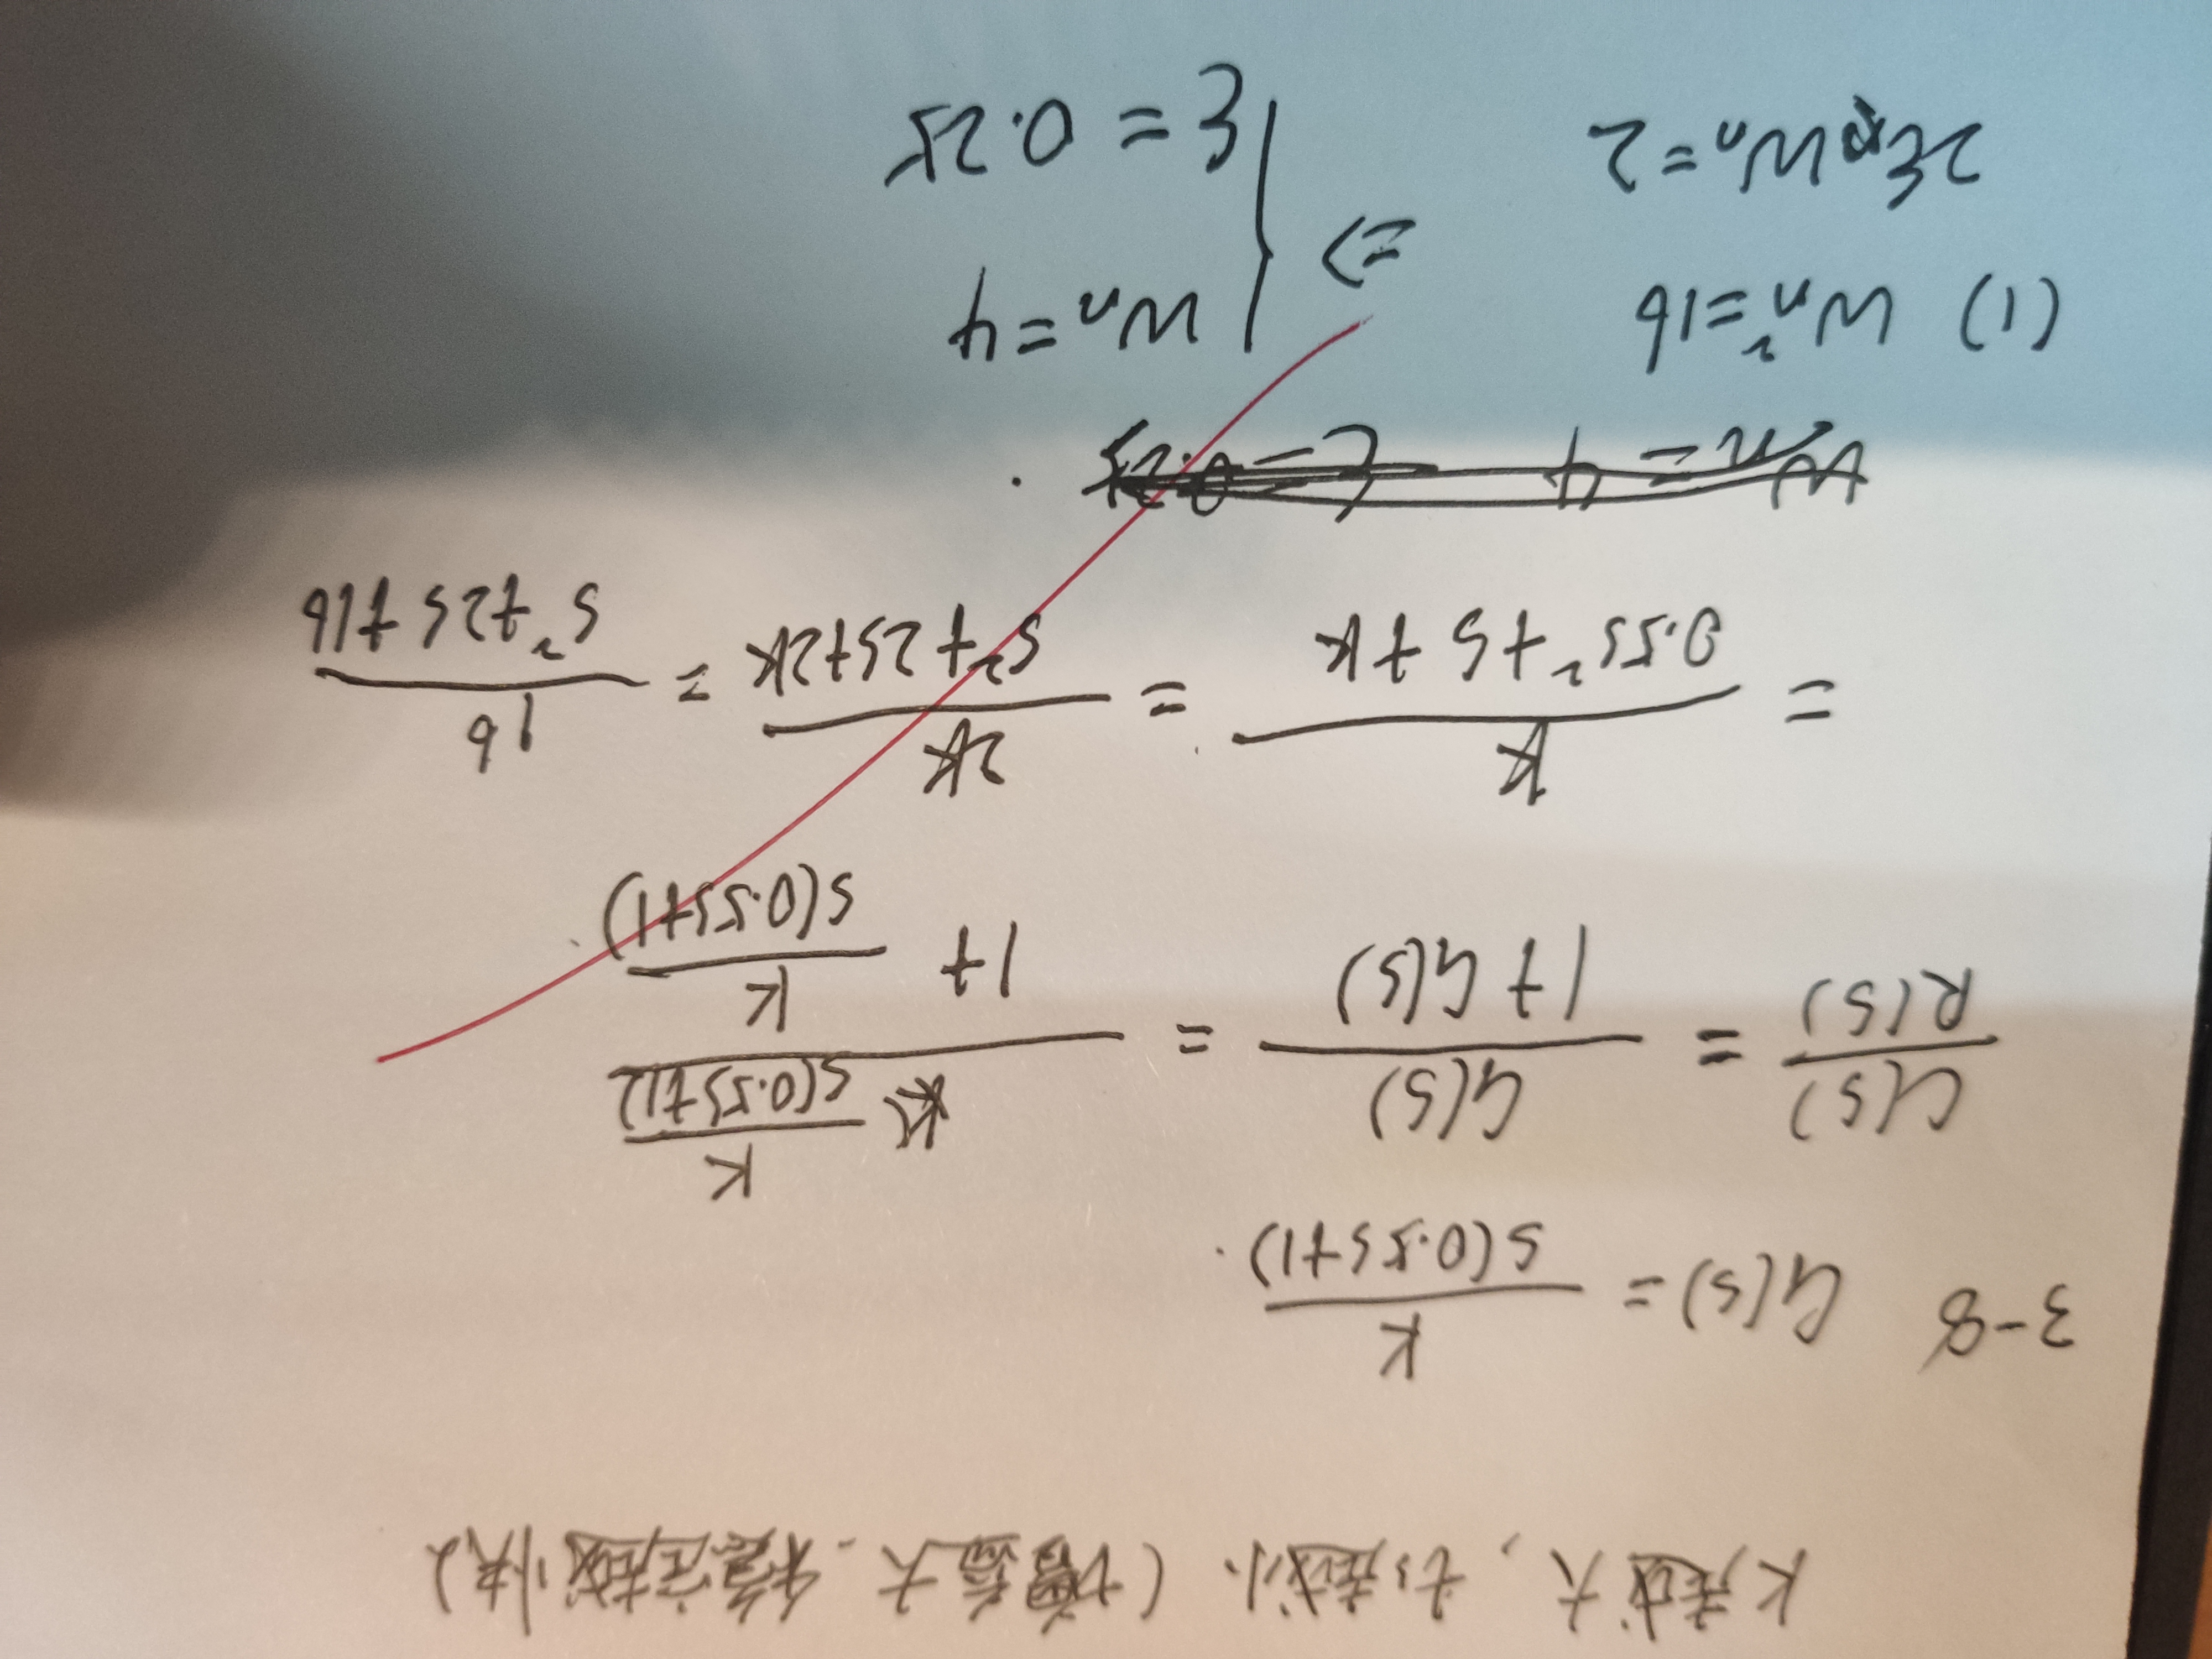 K越大,ts越小(增益大,稳定越快)
3-8 G(s) = K / s(0.5s+1).
C(s)/R(s) = G(s) / 1+G(s) = K / s(0.5s+1) / 1+ K / s(0.5s+1)
= K / 0.5s²+s+K = 2K / s²+2s+2K = 16 / s²+2s+16
(1) Wn²=16 ⇒ { Wn=4
2ξWn=2 ξ=0.25